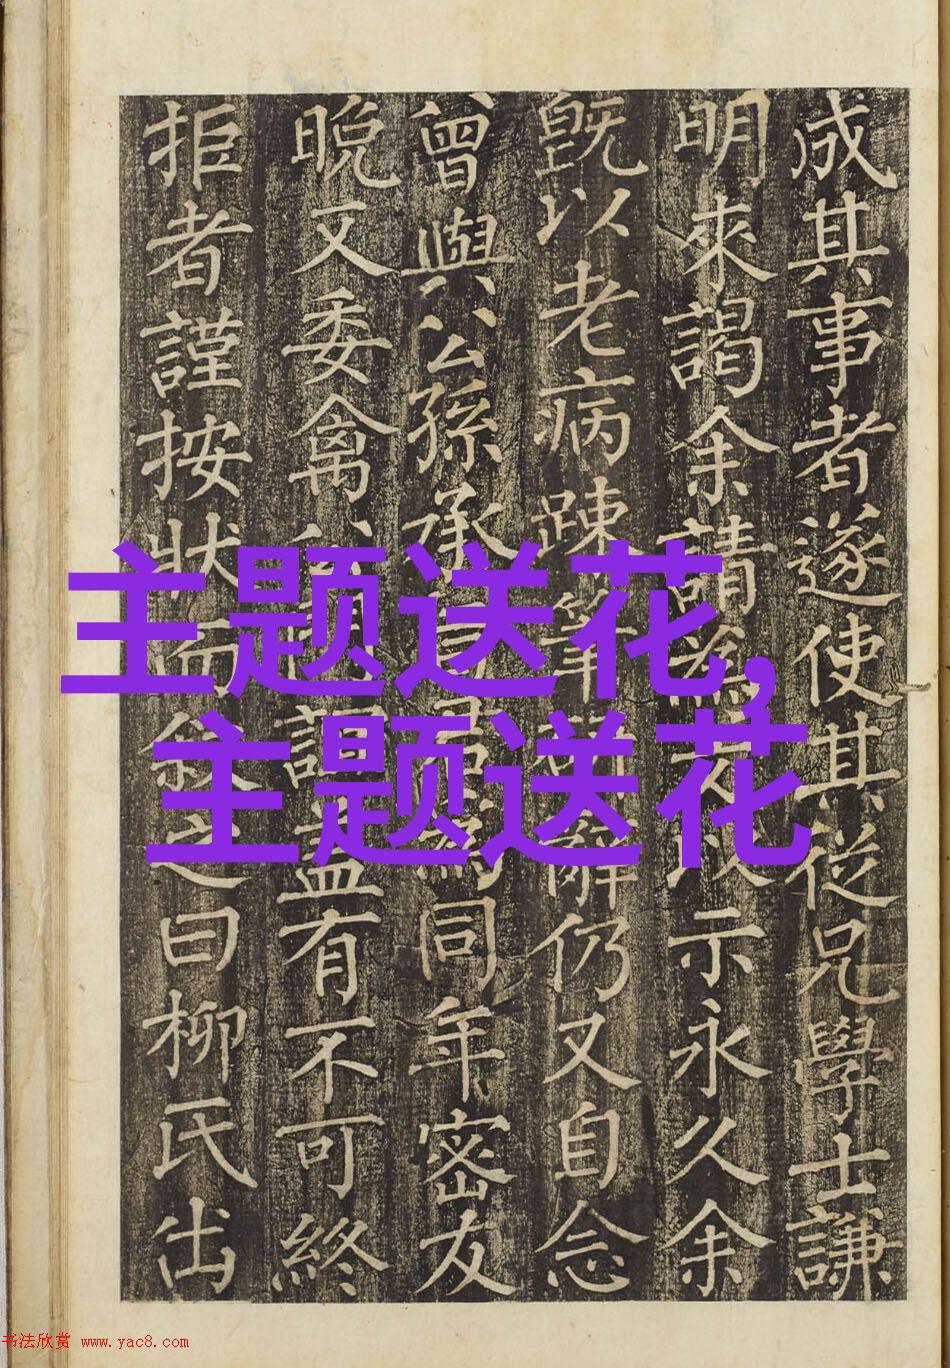 成其事者遂使其從兄學士謙
明來謁余請為以示永久余
既以老病踈筆辭仍又自念
曾與公孫承同年密友
晚又委禽公有不可終
拒者謹按狀而敘之曰柳氏出
主题送花,
主题送花
书法欣赏 www.yac8.com